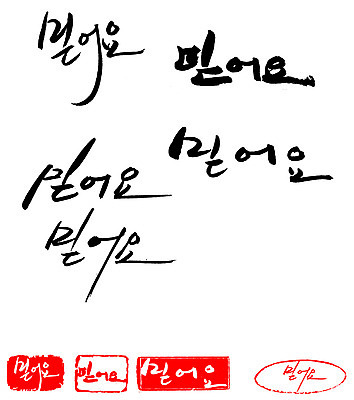 믿어요
믿어요
믿어요
믿어요
믿어요
믿어요
믿어요
믿어요
믿어요